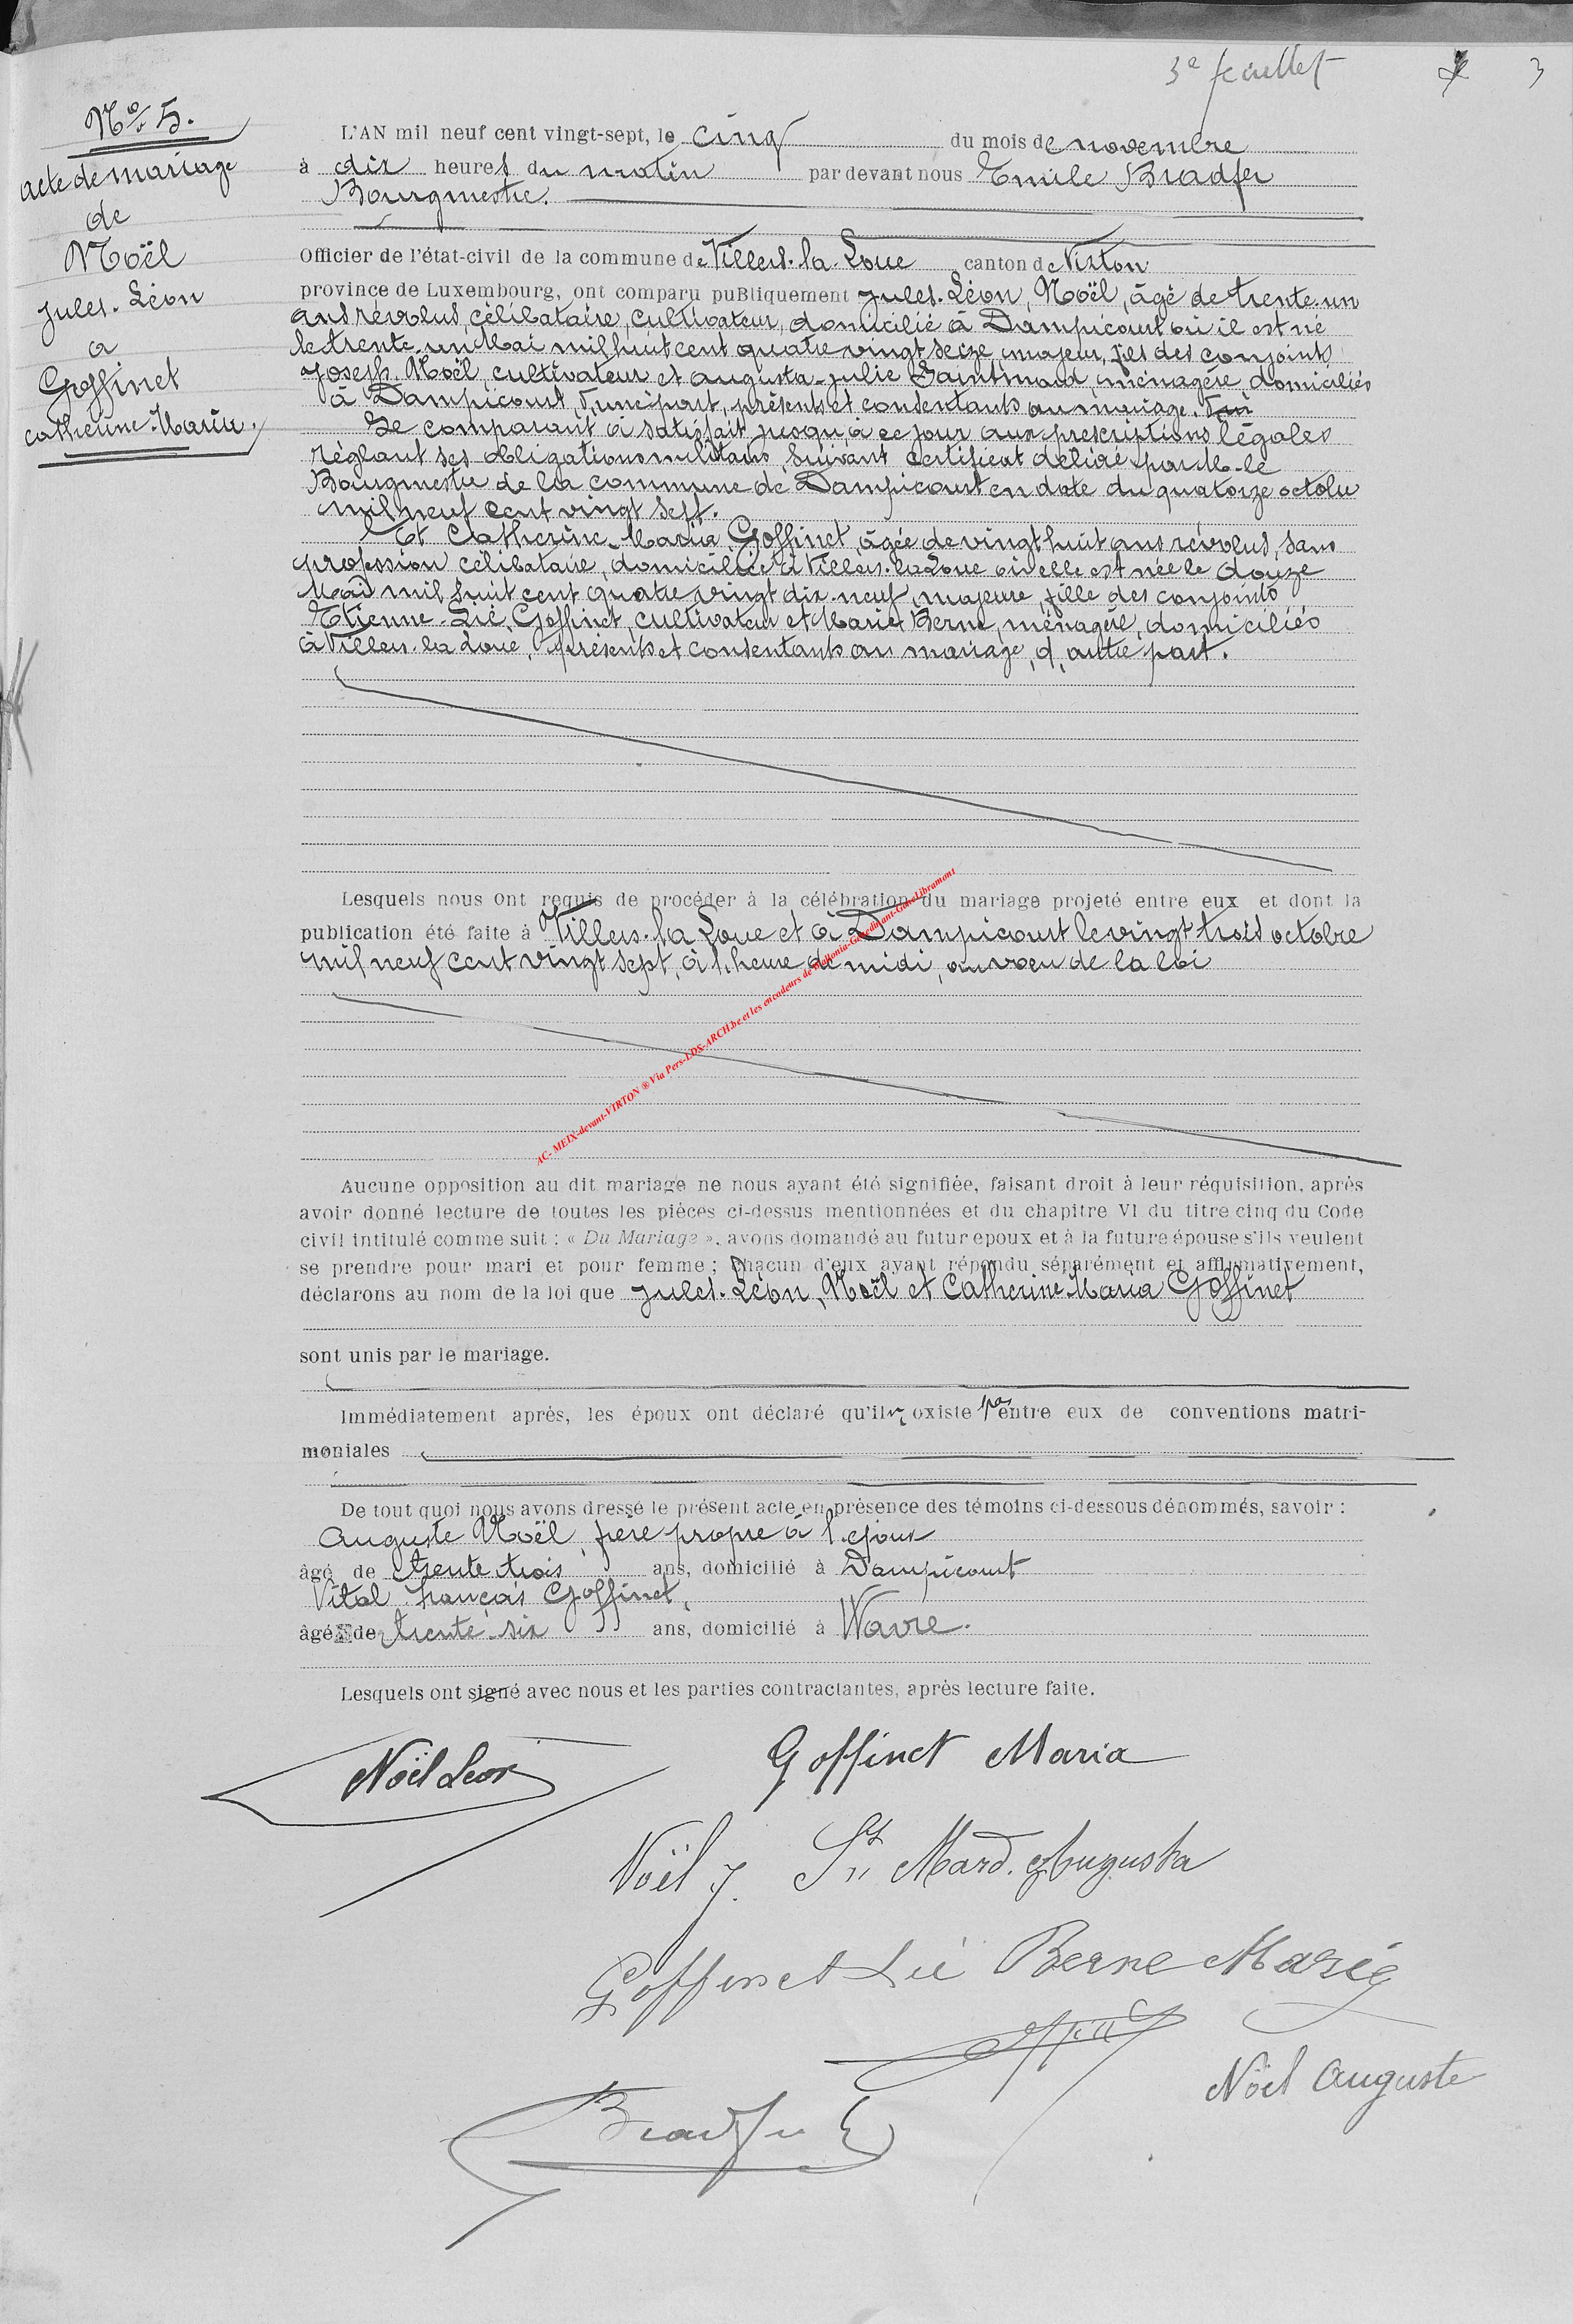 3e feuillet 3
No 5.
acte de mariage
de
Noël
Jules-Léon
a
Goffinet
Catherine-Maria.
L'AN mil neuf cent vingt-sept, le cinq du mois de novembre
à dix heures du matin par devant nous Emile Bradfer
Bourgmestre.
Officier de l'état-civil de la commune de Villers-la-Loue canton de Virton
province de Luxembourg, ont comparu puBliquement Jules-Léon, Noël, âgé de trente-un
ans révolus, célibataire, cultivateur, domicilié à Dampicourt où il est né
le trente-un Mai mil huit cent quatre vingt seize, majeur, fils des conjoints
Joseph Noël, cultivateur et Augusta-Julie Saintmard, ménagère, domiciliés
à Dampicourt, d'une part, présents et consentants au mariage.
Le comparant a satisfait jusqu'à ce jour aux prescriptions légales
réglant ses obligations militaires, suivant certificat délivré par M. le
Bourgmestre de la commune de Dampicourt en date du quatorze octobre
mil neuf cent vingt sept.
Et Catherine-Maria, Goffinet, âgée de vingt huit ans révolus, sans
profession, célibataire, domiciliée à Villers-la-Loue où elle est née le douze
Mai mil huit cent quatre vingt dix-neuf, majeure, fille des conjoints
Etienne-Lié, Goffinet, cultivateur et Marie Berne, ménagère, domiciliés
à Villers-la-Loue, présents et consentants au mariage, d'autre part.
Lesquels nous ont requis de procéder à la célébration du mariage projeté entre eux et dont la
publication été faite à Villers-la-Loue et à Dampicourt le vingt trois octobre
mil neuf cent vingt sept, à l'heure de midi, au vœu de la loi
AC- MEIX-devant-VIRTON ® Via Pers-LDS-ARCH.be et les encodeurs de Wallonia-Genedinant-GeneLibramont
Aucune opposition au dit mariage ne nous ayant été signifiée, faisant droit à leur réquisition, après
avoir donné lecture de toutes les pièces ci-dessus mentionnées et du chapitre VI du titre cinq du Code
civil intitulé comme suit : « Du Mariage », avons demandé au futur epoux et à la future épouse s'ils veulent
se prendre pour mari et pour femme ; chacun d'eux ayant répondu séparément et affirmativement,
déclarons au nom de la loi que Jules-Léon, Noël et Catherine-Maria Goffinet
sont unis par le mariage.
Immédiatement après, les époux ont déclaré qu'il n'existe pas entre eux de conventions matri-
moniales
De tout quoi nous avons dressé le présent acte en présence des témoins ci-dessous dénommés, savoir :
Auguste Noël, frère propre à l'époux
âgé de trente trois ans, domicilié à Dampicourt
Vital François Goffinet,
âgé de trente-six ans, domicilié à Wavre.
Lesquels ont signé avec nous et les parties contractantes, après lecture faite.
Noël Léon
Goffinet Maria
Noël J. St Mard. Augusta
Goffinet Lié Berne Marie
Noël Auguste
Bradfer E